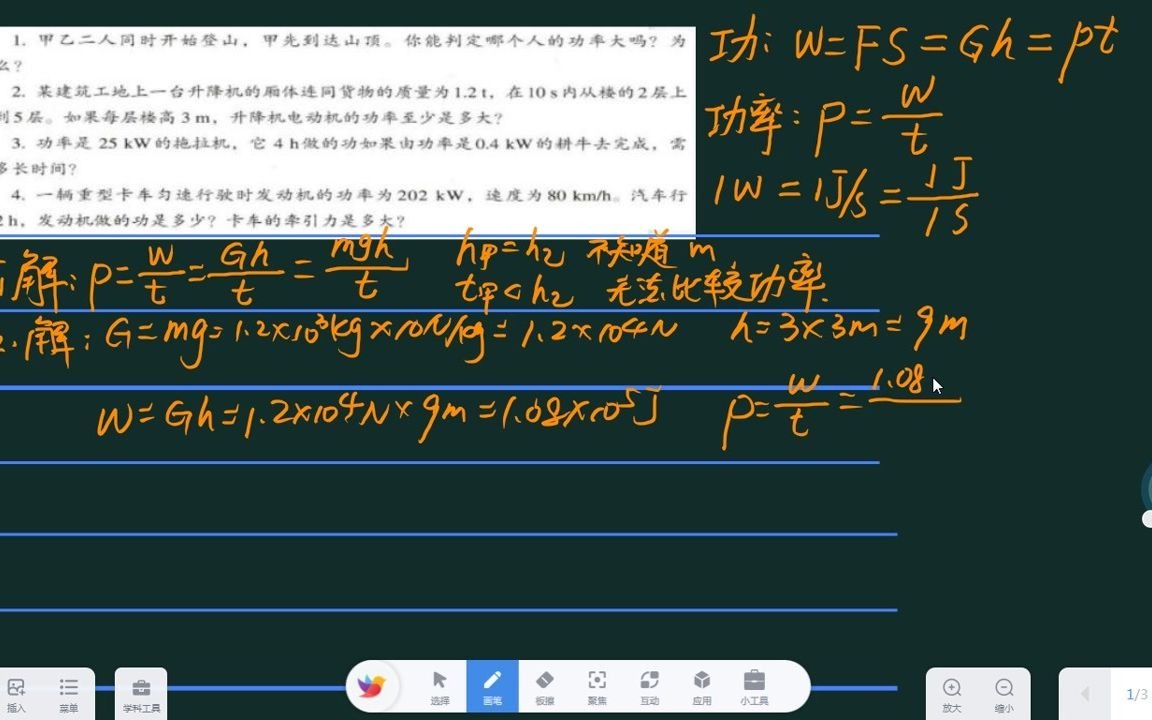 1. 甲乙二人同时开始登山，甲先到达山顶。你能判定哪个人的功率大吗？为
么？
2. 某建筑工地上一台升降机的厢体连同货物的质量为1.2 t，在10 s内从楼的2层上
到5层。如果每层楼高3 m，升降机电动机的功率至少是多大？
3. 功率是 25 kW的拖拉机，它 4 h做的功如果由功率是0.4 kW的耕牛去完成，需
多长时间？
4. 一辆重型卡车匀速行驶时发动机的功率为202 kW，速度为80 km/h。汽车行
2 h，发动机做的功是多少？卡车的牵引力是多大？
功: W=FS=Gh=pt
功率: P=W/t
1W=1J/s=1J/1S
解: P=W/t=Gh/t=mgh/t h甲=h乙 不知道 m
t甲<h乙 无法比较功率.
2.解: G=mg=1.2×10³kg×10N/kg=1.2×10⁴N h=3×3m=9m
W=Gh=1.2×10⁴N×9m=1.08×10⁵J P=W/t=1.08
插入 菜单 学科工具 选择 画笔 板擦 聚焦 互动 应用 小工具 放大 缩小 1/3